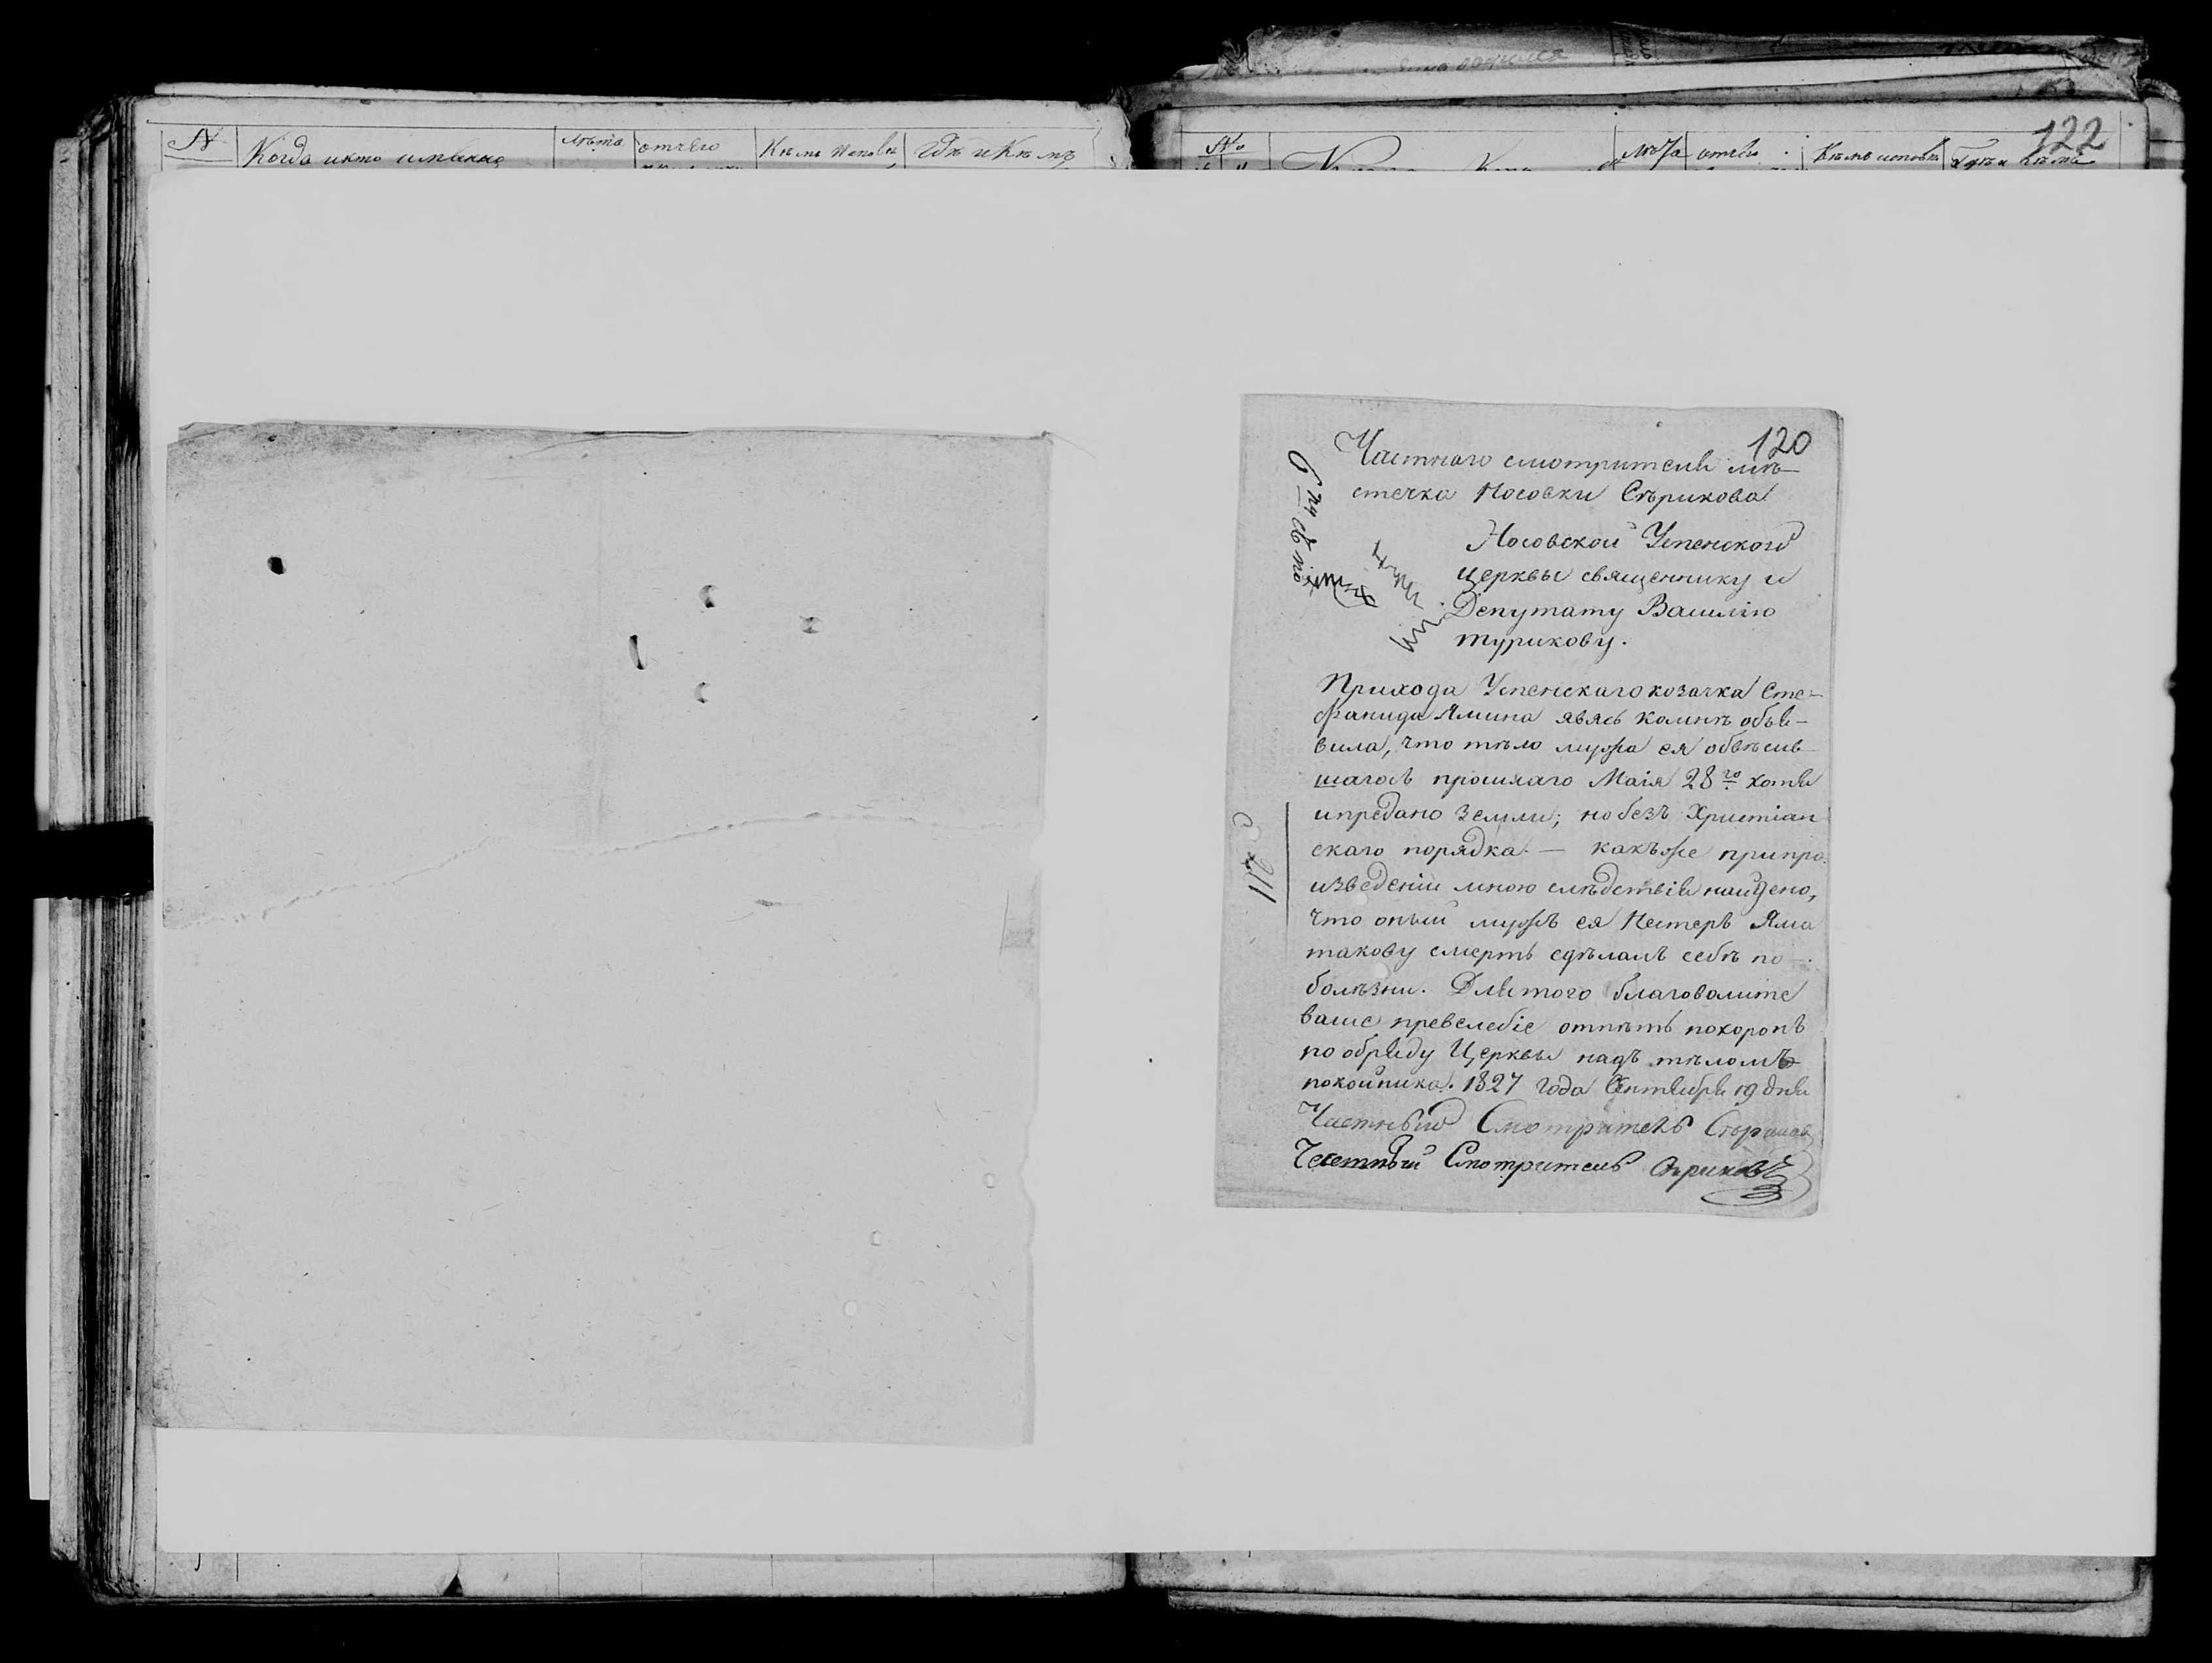 №
Когда и кто именно
лѣта
отчего
Кѣмъ исповѣ
Гдѣ и Кѣмъ
№
лѣта
отчего
Кѣмъ исповѣ
Гдѣ и Кѣмъ
122
120
Частнаго смотрителя мѣ-
стечка Носовки Сѣрикова
Носовской Успенского
Церквы священнику и
Депутату Василію
Турикову.
Прихода Успенскаго козачка Сте-
фанида Ямина явясь комнѣ объя-
вила, что тѣло мужа ея обвѣсив-
шагось прошлаго Маія 28го хотя
и предано земли; но безъ Христіан
скаго порядка. — какъже при про
изведеніи мною слѣдствія найдено,
что оный мужъ ея Нестеръ Яма
такову смерть сдѣлалъ себѣ по
болѣзни. Для того благоволите
ваше превелебіе отпѣть похоронъ
по обряду Церквы надъ тѣломъ
покойника. 1827 года Сентября 19 дня
Частный Смотритель Сѣриков
Частный Смотритель Сѣриковъ
№ 211